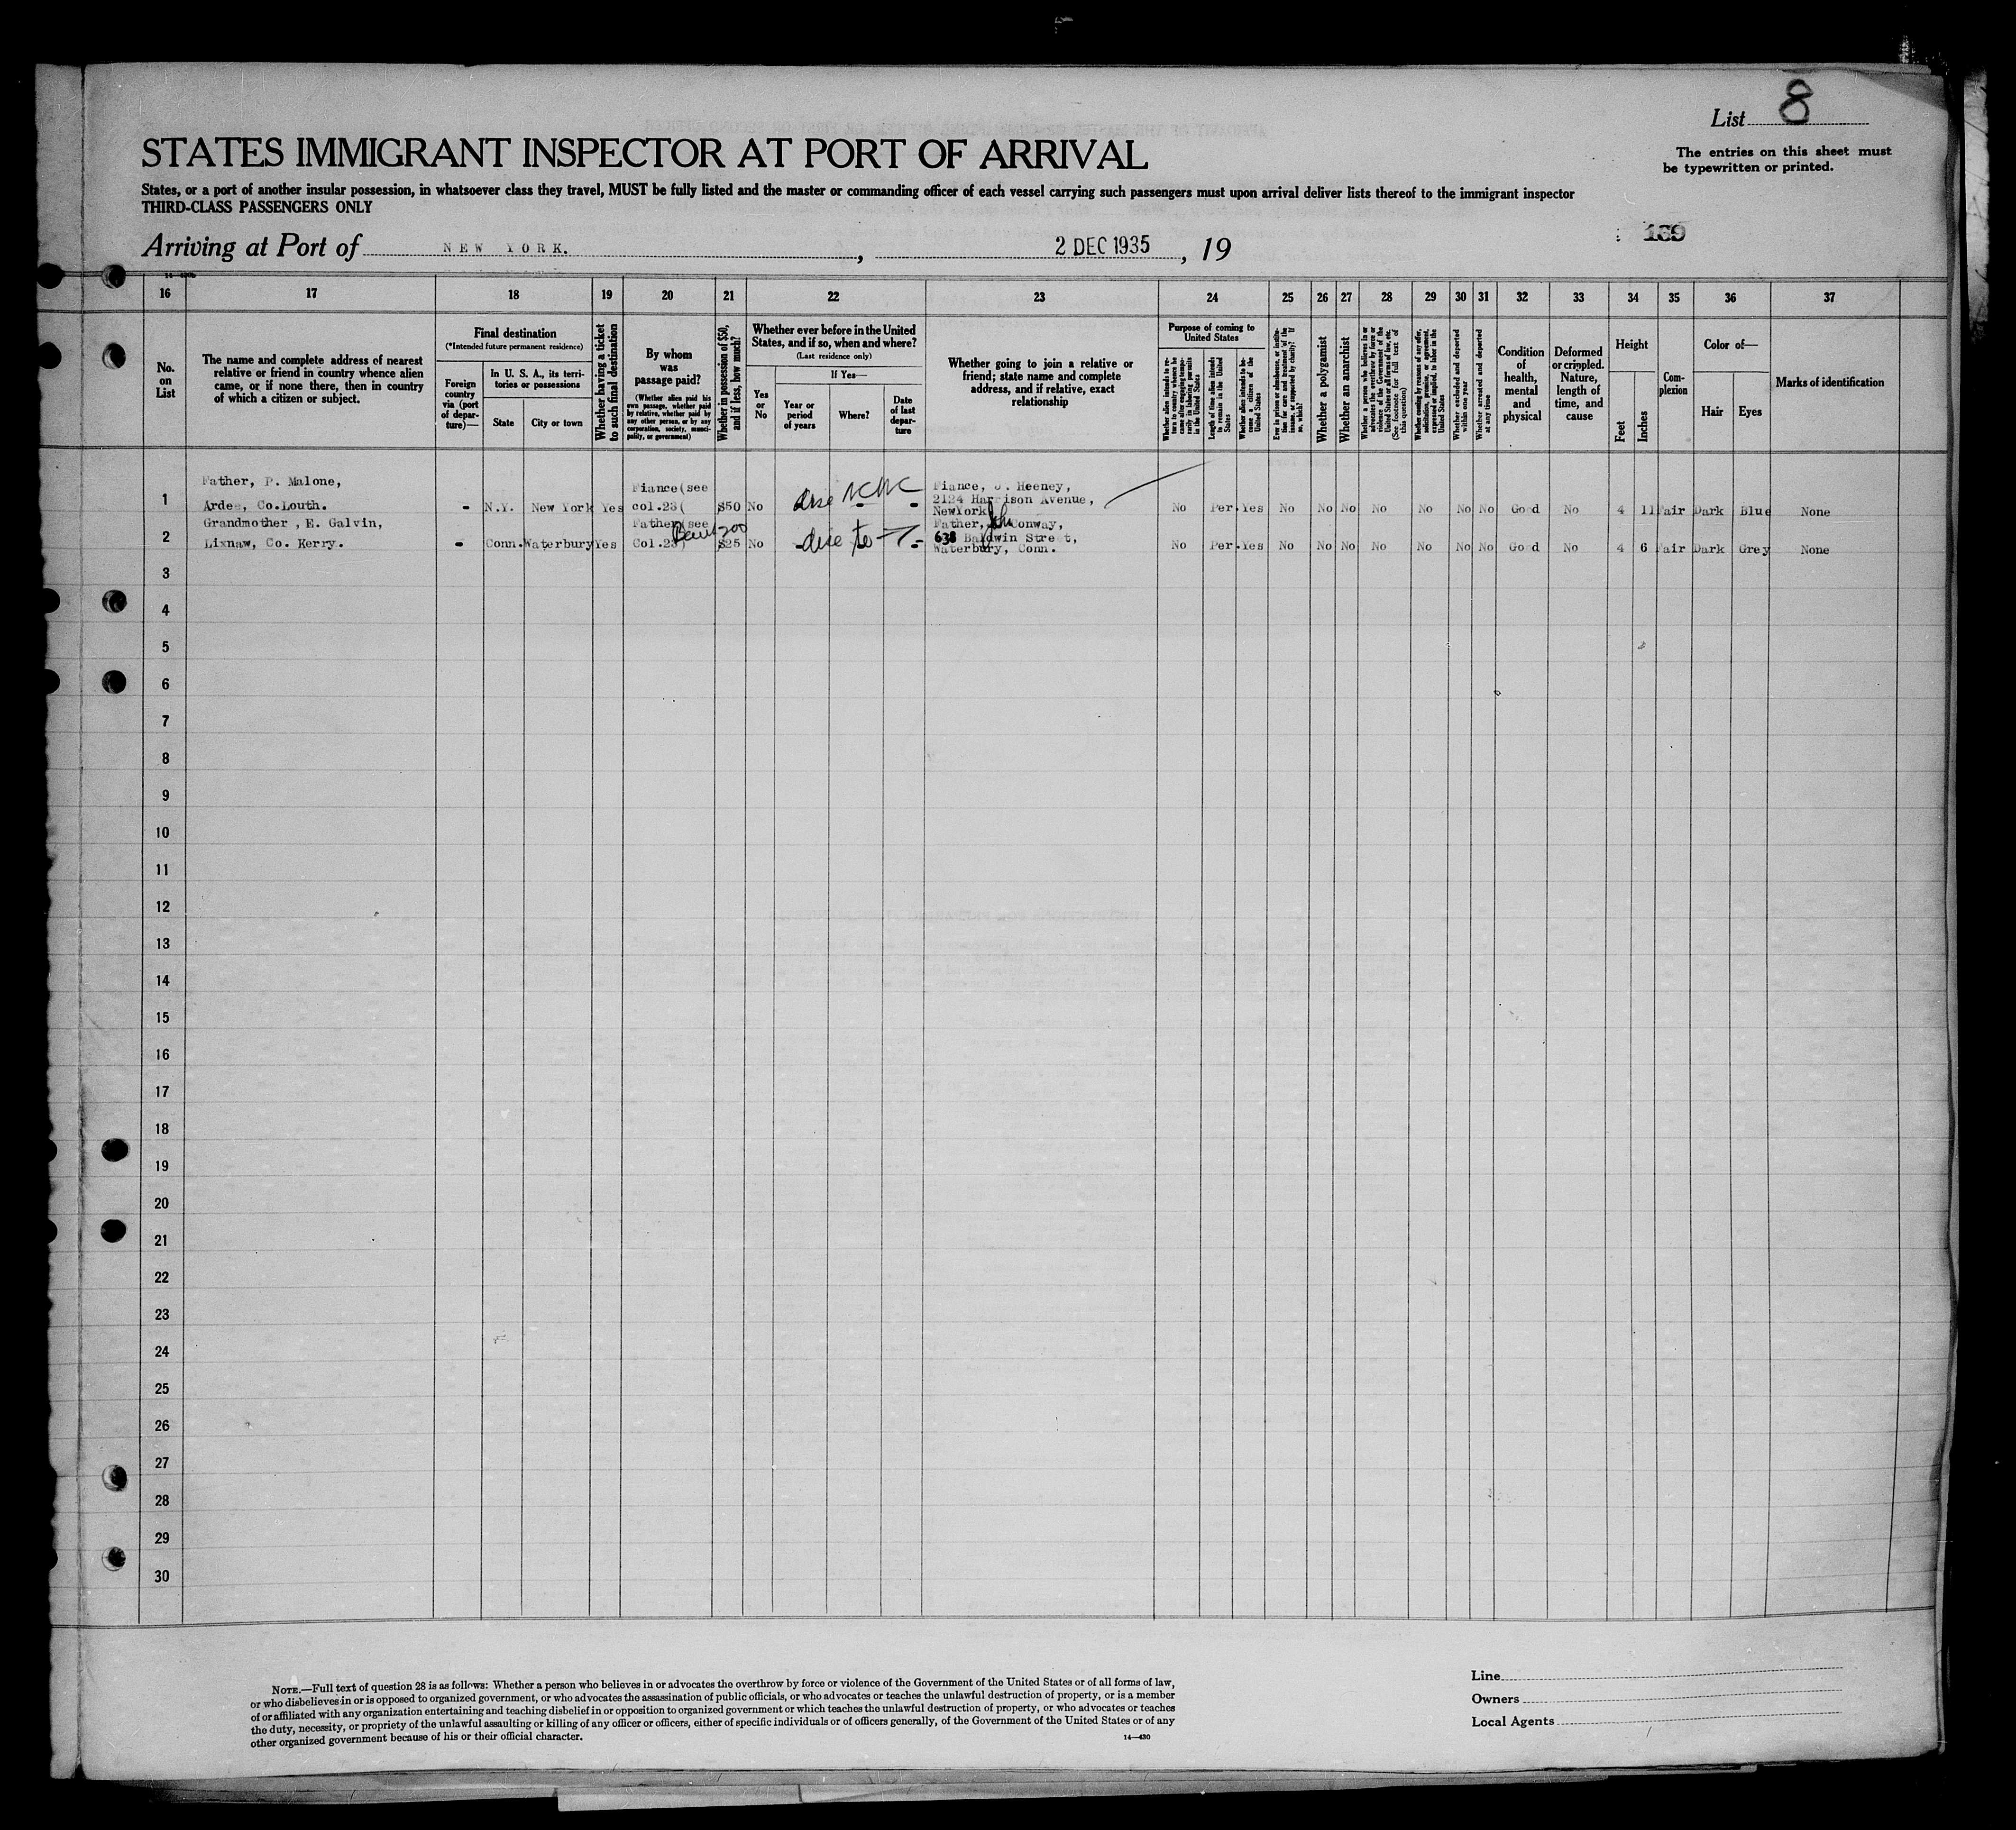 List 8
The entries on this sheet must
be typewritten or printed.
STATES IMMIGRANT INSPECTOR AT PORT OF ARRIVAL
States, or a port of another insular possession, in whatsoever class they travel, MUST be fully listed and the master or commanding officer of each vessel carrying such passengers must upon arrival deliver lists thereof to the immigrant inspector
THIRD-CLASS PASSENGERS ONLY
Arriving at Port of NEW YORK. , 2 DEC 1935 , 19
16 17 18 19 20 21 22 23 24 25 26 27 28 29 30 31 32 33 34 35 36 37
No.
on
List
The name and complete address of nearest
relative or friend in country whence alien
came, or if none there, then in country
of which a citizen or subject.
Final destination
(*Intended future permanent residence)
Foreign
country
via (port
of depar-
ture)—
In U. S. A., its terri-
tories or possessions
State
City or town
Whether having a ticket
to such final destination
By whom
was
passage paid?
(Whether alien paid his
own passage, whether paid
by relative, whether paid by
any other person, or by any
corporation, society, munici-
pality, or government)
Whether in possession of $50,
and if less, how much?
Whether ever before in the United
States, and if so, when and where?
(Last residence only)
Yes
or
No
If Yes—
Year or
period
of years
Where?
Date
of last
depar-
ture
Whether going to join a relative or
friend; state name and complete
address, and if relative, exact
relationship
Purpose of coming to
United States
Whether alien intends to re-
turn to country whence he
came after engaging tempo-
rarily in laboring pursuits
in the United States
Length of time alien intends
to remain in the United
States
Whether alien intends to be-
come a citizen of the
United States
Ever in prison or almshouse, or institu-
tion for care and treatment of the
insane, or supported by charity? If
so, which?
Whether a polygamist
Whether an anarchist
Whether a person who believes in or
advocates the overthrow by force or
violence of the Government of the
United States or all forms of law, etc.
(See footnote for full text of
this question)
Whether coming by reason of any offer,
solicitation, promise, or agreement,
expressed or implied, to labor in the
United States
Whether excluded and deported
within one year
Whether arrested and deported
at any time
Condition
of
health,
mental
and
physical
Deformed
or crippled.
Nature,
length of
time, and
cause
Height
Feet
Inches
Com-
plexion
Color of—
Hair
Eyes
Marks of identification
Father, P. Malone,
Fiance(see
Fiance, J. Heeney,
2124 Harrison Avenue,
1 Ardee, Co.Louth. - N.Y. New York Yes col.23( $50 No - - NewYork No Per. Yes No No No No No No No Good No 4 11 Fair Dark Blue None
Grandmother , E. Galvin,
Father(see
Father, John Conway,
638 Baldwin Street,
2 Lixnaw, Co. Kerry. - Conn. Waterbury Yes Col.23) $25 No - - Waterbury, Conn. No Per. Yes No No No No No No No Good No 4 6 Fair Dark Grey None
3
4
5
6
7
8
9
10
11
12
13
14
15
16
17
18
19
20
21
22
23
24
25
26
27
28
29
30
NOTE.—Full text of question 28 is as follows: Whether a person who believes in or advocates the overthrow by force or violence of the Government of the United States or of all forms of law,
or who disbelieves in or is opposed to organized government, or who advocates the assassination of public officials, or who advocates or teaches the unlawful destruction of property, or is a member
of or affiliated with any organization entertaining and teaching disbelief in or opposition to organized government or which teaches the unlawful destruction of property, or who advocates or teaches
the duty, necessity, or propriety of the unlawful assaulting or killing of any officer or officers, either of specific individuals or of officers generally, of the Government of the United States or of any
other organized government because of his or their official character.
14—430
Line
Owners
Local Agents